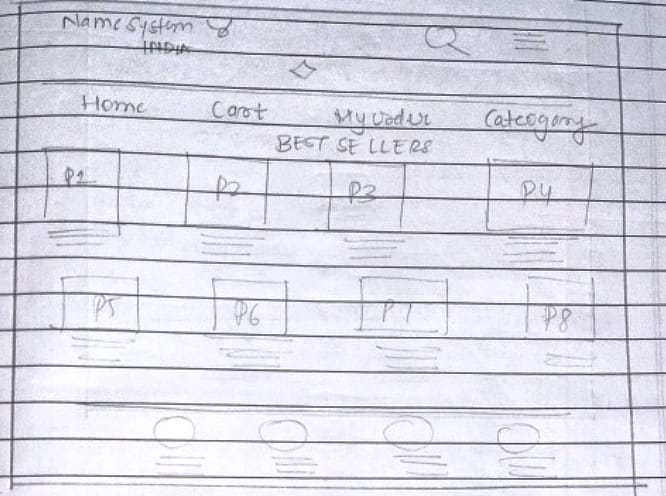 Name System
INDIA
Home Cart My order Cateogory
BEST SELLERS
P1 P2 P3 P4
P5 P6 P7 P8